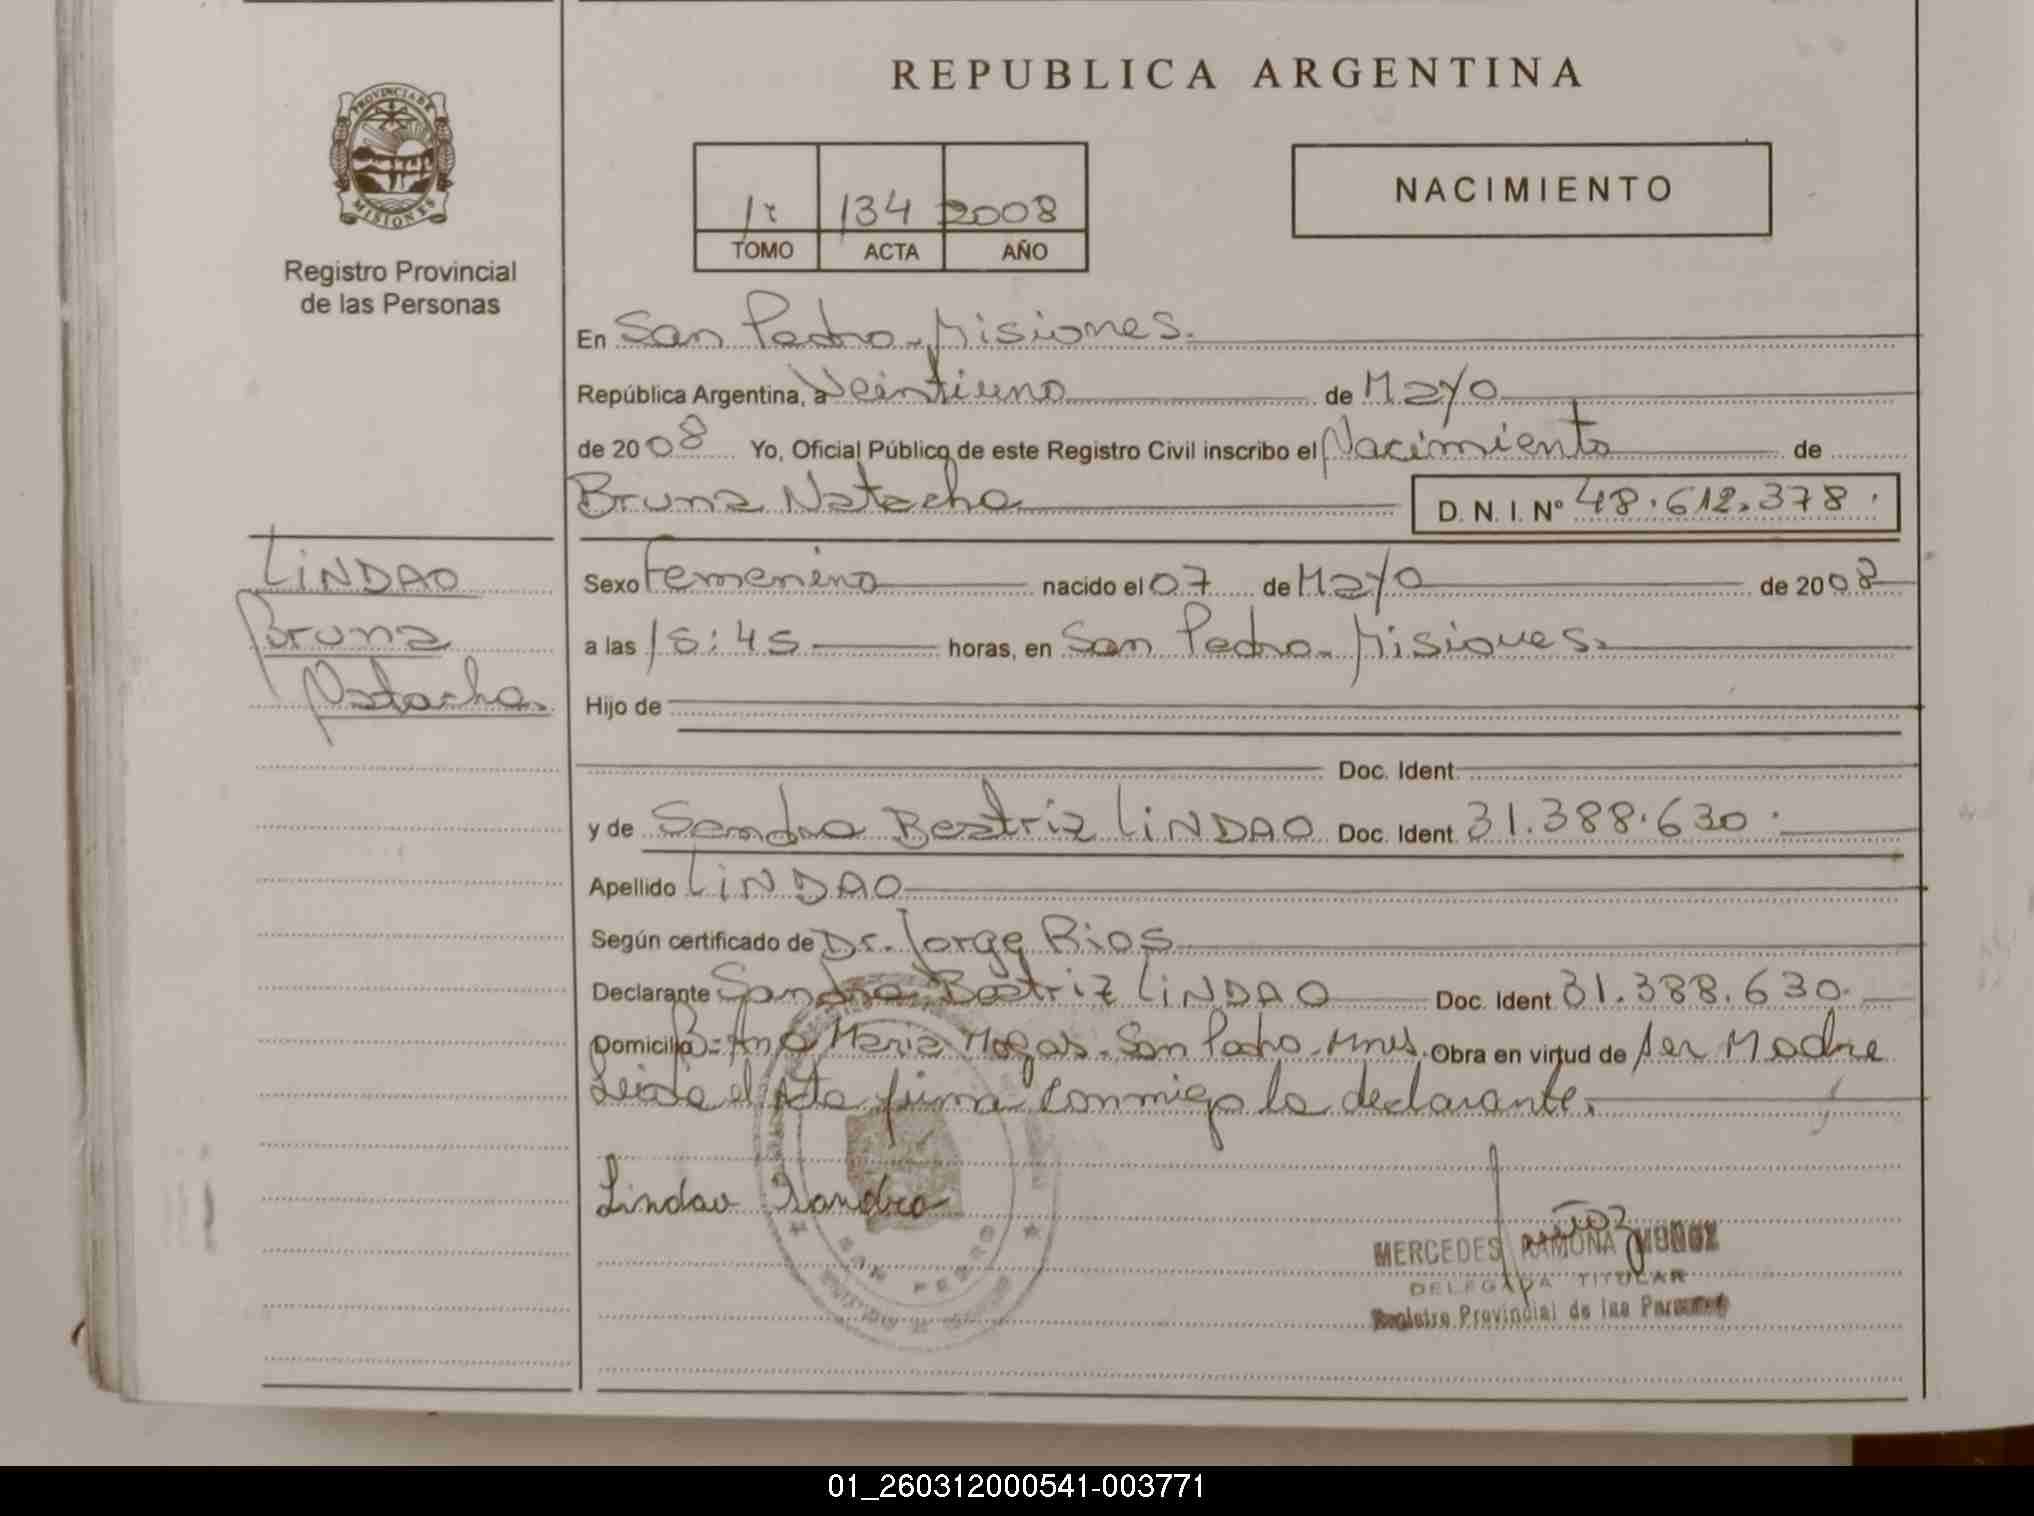 REPUBLICA ARGENTINA
PROVINCIA DE
MISIONES
Registro Provincial
de las Personas
134 2008
TOMO ACTA AÑO
NACIMIENTO
En San Pedro - Misiones.
República Argentina, a Veintiuno de Mayo
de 2008 Yo, Oficial Público de este Registro Civil inscribo el Nacimiento de
Bruna Natacha D. N. I. Nº 48.612.378.
LINDAO
Bruna
Natacha.
Sexo Femenino nacido el 07 de Mayo de 2008
a las 15:45 horas, en San Pedro - Misiones.
Hijo de
Doc. Ident.
y de Sandra Beatriz LINDAO Doc. Ident. 31.388.630.
Apellido LINDAO
Según certificado de Dr. Jorge Rios
Declarante Sandra Beatriz LINDAO Doc. Ident. 31.388.630.
Domicilio Bº Ana Maria Mogas - San Pedro - Mnes. Obra en virtud de ser Madre
Leida el Acta firma conmigo la declarante.
Lindao Sandra
SAN PEDRO
MERCEDES RAMONA MUÑOZ
DELEGADA TITULAR
Registro Provincial de las Personas
01_260312000541-003771